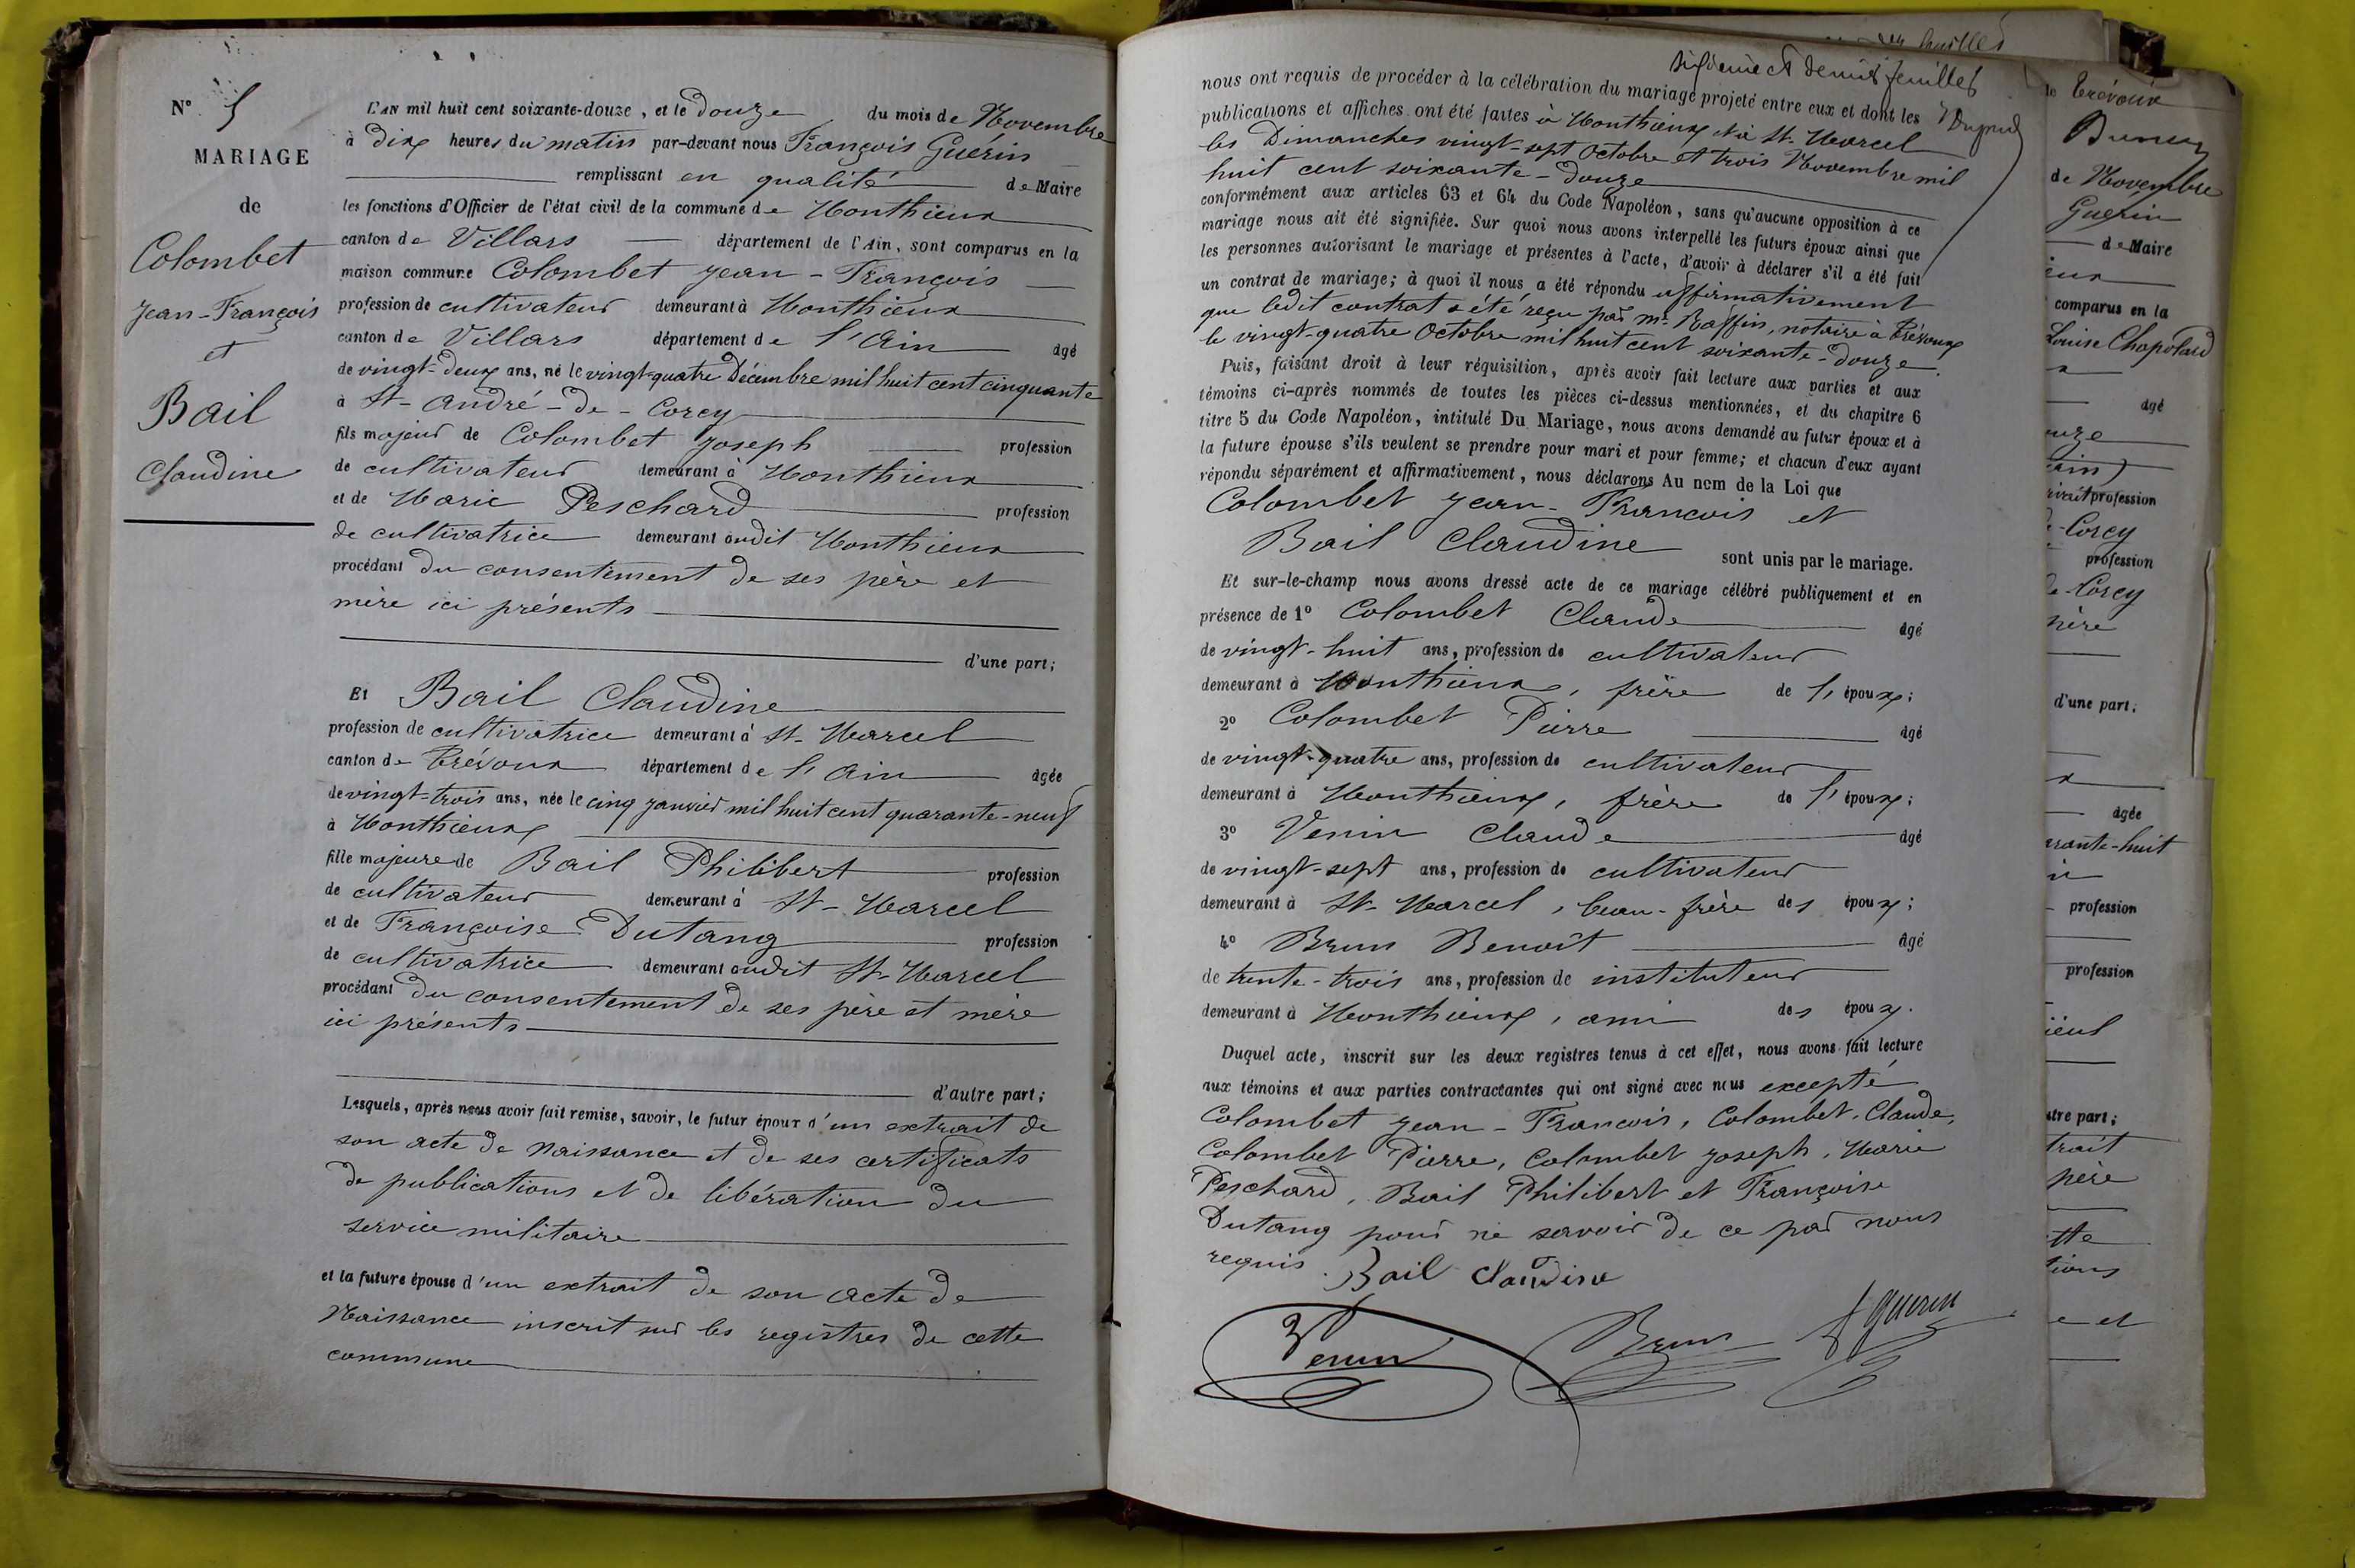 N° 5
MARIAGE
de
Colombet
Jean-François
et
Bail
Claudine
L'AN mil huit cent soixante-douze, et le douze du mois de Novembre
à dix heures du matin par-devant nous François Guérin
remplissant en qualité de Maire
les fonctions d'Officier de l'état civil de la commune de Monthieux
canton de Villars département de l'Ain, sont comparus en la
maison commune Colombet Jean-François
profession de cultivateur demeurant à Monthieux
canton de Villars département de l'Ain âgé
de vingt-deux ans, né le vingt-quatre Décembre mil huit cent cinquante
à St-André-de-Corcy
fils majeur de Colombet Joseph profession
de cultivateur demeurant à Monthieux
et de Marie Peschard profession
de cultivatrice demeurant audit Monthieux
procédant du consentement de ses père et
mère ici présents
d'une part;
Et Bail Claudine
profession de cultivatrice demeurant à St-Marcel
canton de Trévoux département de l'Ain âgée
de vingt-trois ans, née le cinq janvier mil huit cent quarante-neuf
à Monthieux
fille majeure de Bail Philibert profession
de cultivateur demeurant à St-Marcel
et de Françoise Dutang profession
de cultivatrice demeurant audit St-Marcel
procédant du consentement de ses père et mère
ici présents
d'autre part;
Lesquels, après nous avoir fait remise, savoir, le futur époux d'un extrait de
son acte de Naissance et de ses certificats
de publications et de libération du
service militaire
et la future épouse d'un extrait de son acte de
Naissance inscrit sur les registres de cette
commune
et demie feuilles
nous ont requis de procéder à la célébration du mariage projeté entre eux et dont les
publications et affiches ont été faites à Monthieux et à St-Marcel
les Dimanches vingt-sept Octobre et trois Novembre mil
huit cent soixante-douze
conformément aux articles 63 et 64 du Code Napoléon, sans qu'aucune opposition à ce
mariage nous ait été signifiée. Sur quoi nous avons interpellé les futurs époux ainsi que
les personnes autorisant le mariage et présentes à l'acte, d'avoir à déclarer s'il a été fait
un contrat de mariage; à quoi il nous a été répondu affirmativement
que ledit contrat a été reçu par Me Raffin, notaire à Trévoux
le vingt-quatre Octobre mil huit cent soixante-douze.
Puis, faisant droit à leur réquisition, après avoir fait lecture aux parties et aux
témoins ci-après nommés de toutes les pièces ci-dessus mentionnées, et du chapitre 6
titre 5 du Code Napoléon, intitulé Du Mariage, nous avons demandé au futur époux et à
la future épouse s'ils veulent se prendre pour mari et pour femme; et chacun d'eux ayant
répondu séparément et affirmativement, nous déclarons Au nom de la Loi que
Colombet Jean-François et
Bail Claudine sont unis par le mariage.
Et sur-le-champ nous avons dressé acte de ce mariage célébré publiquement et en
présence de 1° Colombet Claude âgé
de vingt-huit ans, profession de cultivateur
demeurant à Monthieux, frère de l'époux;
2° Colombet Pierre âgé
de vingt-quatre ans, profession de cultivateur
demeurant à Monthieux, frère de l'époux;
3° Venin Claude âgé
de vingt-sept ans, profession de cultivateur
demeurant à St-Marcel, beau-frère des époux;
4° Brun Benoît âgé
de trente-trois ans, profession de instituteur
demeurant à Monthieux, ami des époux.
Duquel acte, inscrit sur les deux registres tenus à cet effet, nous avons fait lecture
aux témoins et aux parties contractantes qui ont signé avec nous excepté
Colombet Jean-François, Colombet Claude,
Colombet Pierre, Colombet Joseph, Marie
Peschard, Bail Philibert et Françoise
Dutang pour ne savoir de ce par nous
requis. Bail Claudine
Venin Brun f Guerin
Trévoux
de Novembre
Guérin
de Maire
comparus en la
Louise Chapolard
âgé
profession
Corcy
profession
de-Corcy
d'une part;
âgée
profession
profession